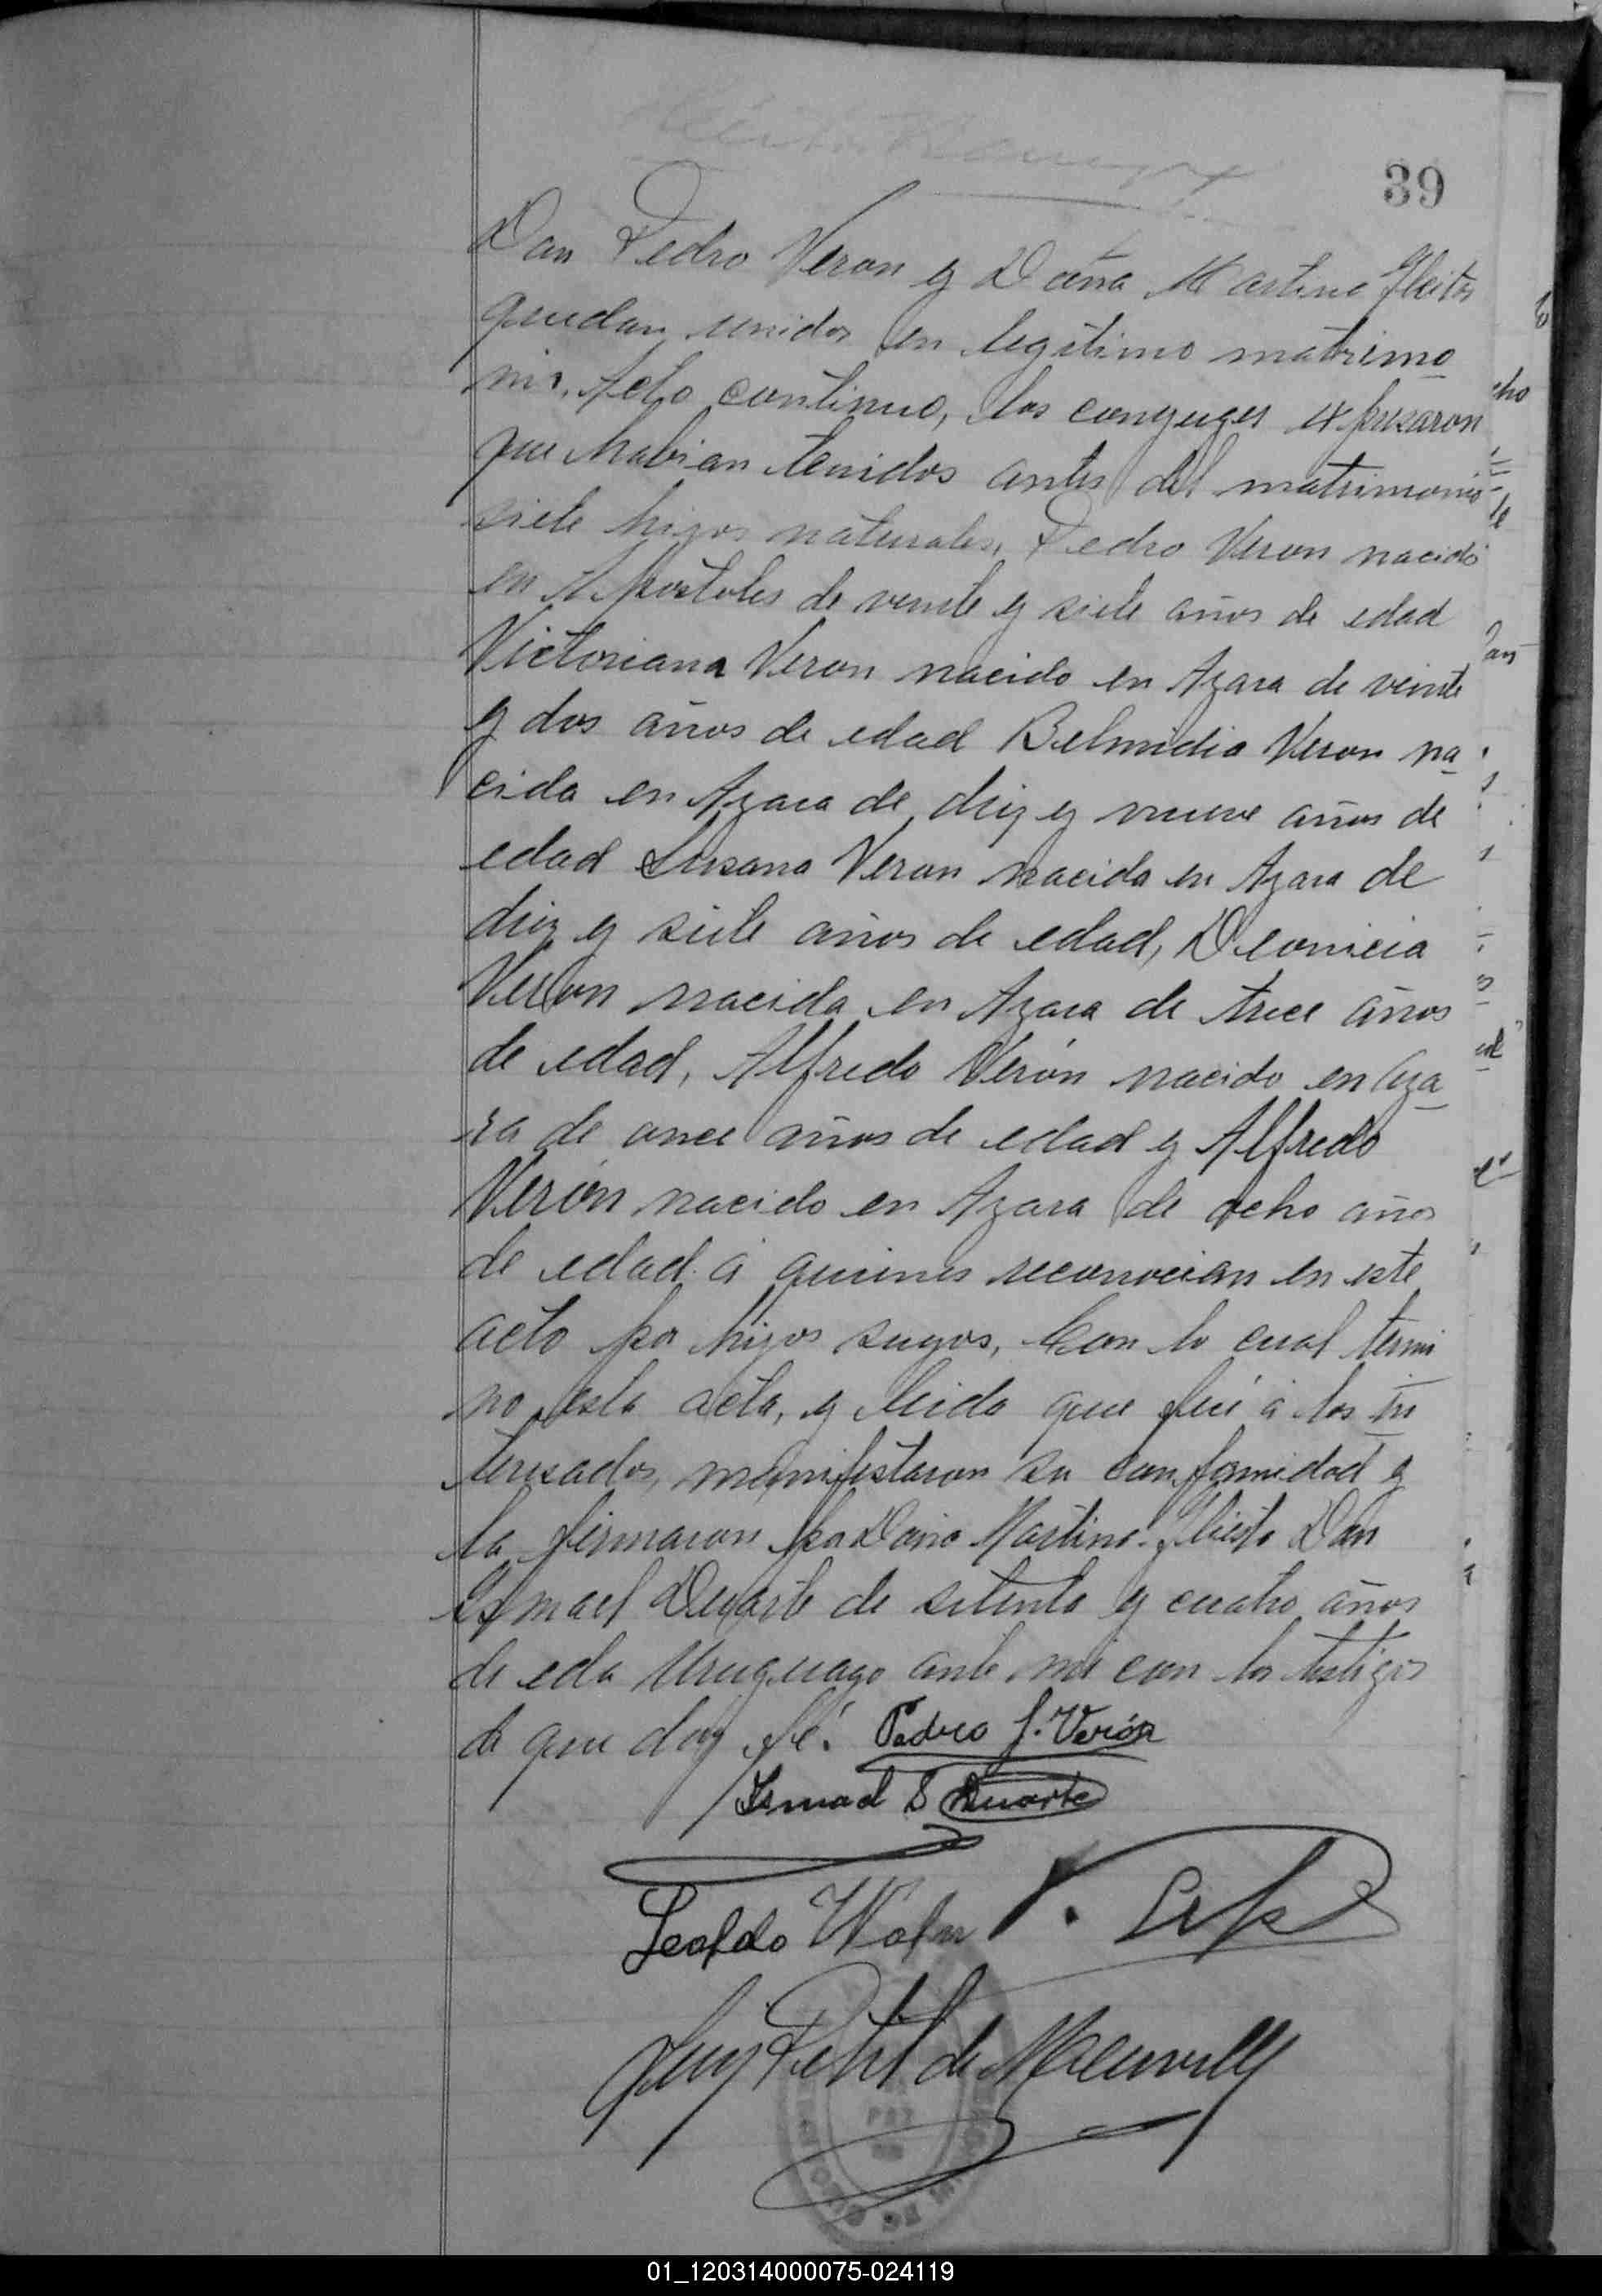 39
Don Pedro Veron y Doña Martina Fleitas
quedan unidos en legitimo matrimo
nio. Acto continuo, los conyuges expusaron
que habian tenidos antes del matrimonio
siete hijos naturales, Pedro Veron nacido
en Apostoles de veinte y siete años de edad
Victoriana Veron nacido en Azara de veinte
y dos años de edad Belmidia Veron na
cida en Azara de diez y nueve años de
edad Susana Veron nacida en Azara de
diez y siete años de edad, Deonicia
Veron nacida en Azara de trece años
de edad, Alfredo Verón nacido en Aza
ra de once años de edad y Alfredo
Verón nacido en Azara de ocho años
de edad á quienes reconocian en este
acto por hijos suyos, Con lo cual termi
no esta acta, y leida que fué á los in
teresados, manifestaron su conformidad y
la firmaron por Doña Martina Fleita Don
Ismael Duarte de setenta y cuatro años
de eda Uruguayo ante mi con los testigos
de que doy fé. Pedro J. Verón
Ismael S Duarte
Leopoldo
Petit de
PAZ
01_120314000075-024119